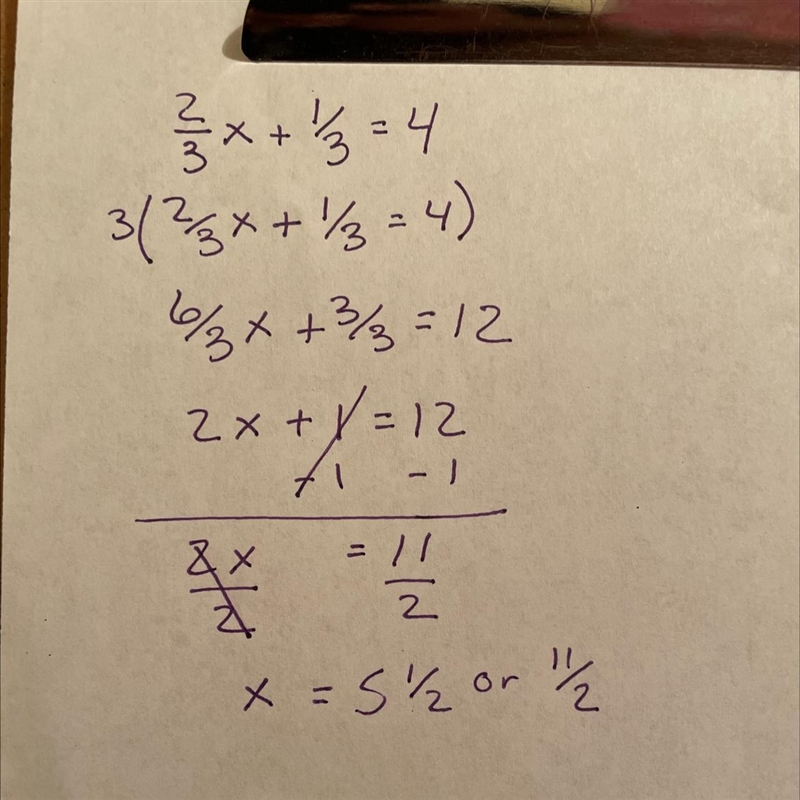 2/3 x + 1/3 = 4
3(2/3 x + 1/3 = 4)
6/3 x + 3/3 = 12
2x + 1 = 12
- 1 - 1
2x/2 = 11/2
x = 5 1/2 or 11/2